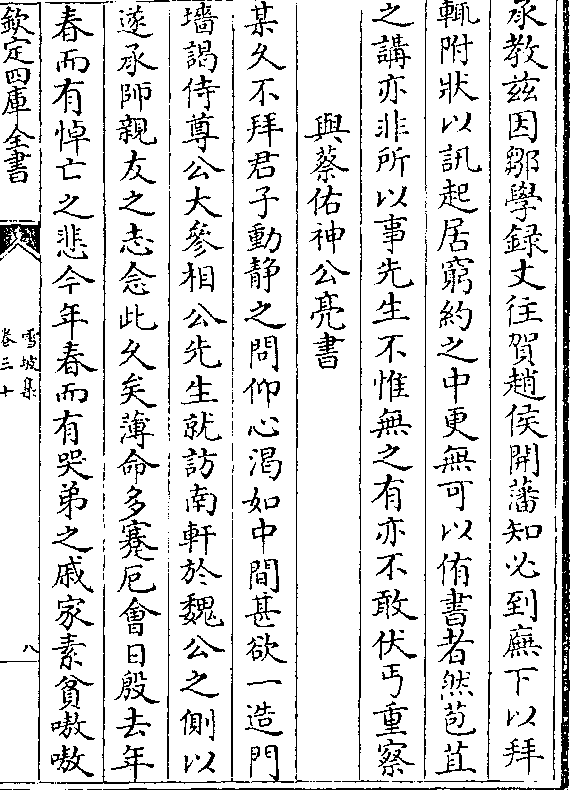 承教兹因鄒學録丈往賀趙侯開藩知必到廡下以拜
輒附狀以訊起居窮約之中更無可以侑書者然苞苴
之講亦非所以事先生不惟無之有亦不敢伏丐重察
與蔡佑神公亮書
某久不拜君子動静之問仰心渴如中間甚欲一造門
墻謁侍尊公大參相公先生就訪南軒於魏公之側以
遂承師親友之志念此久矣薄命多蹇厄會日殷去年
春而有悼亡之悲今年春而有哭弟之戚家素貧嗷嗷
欽定四庫全書
雪坡集
卷三十
八